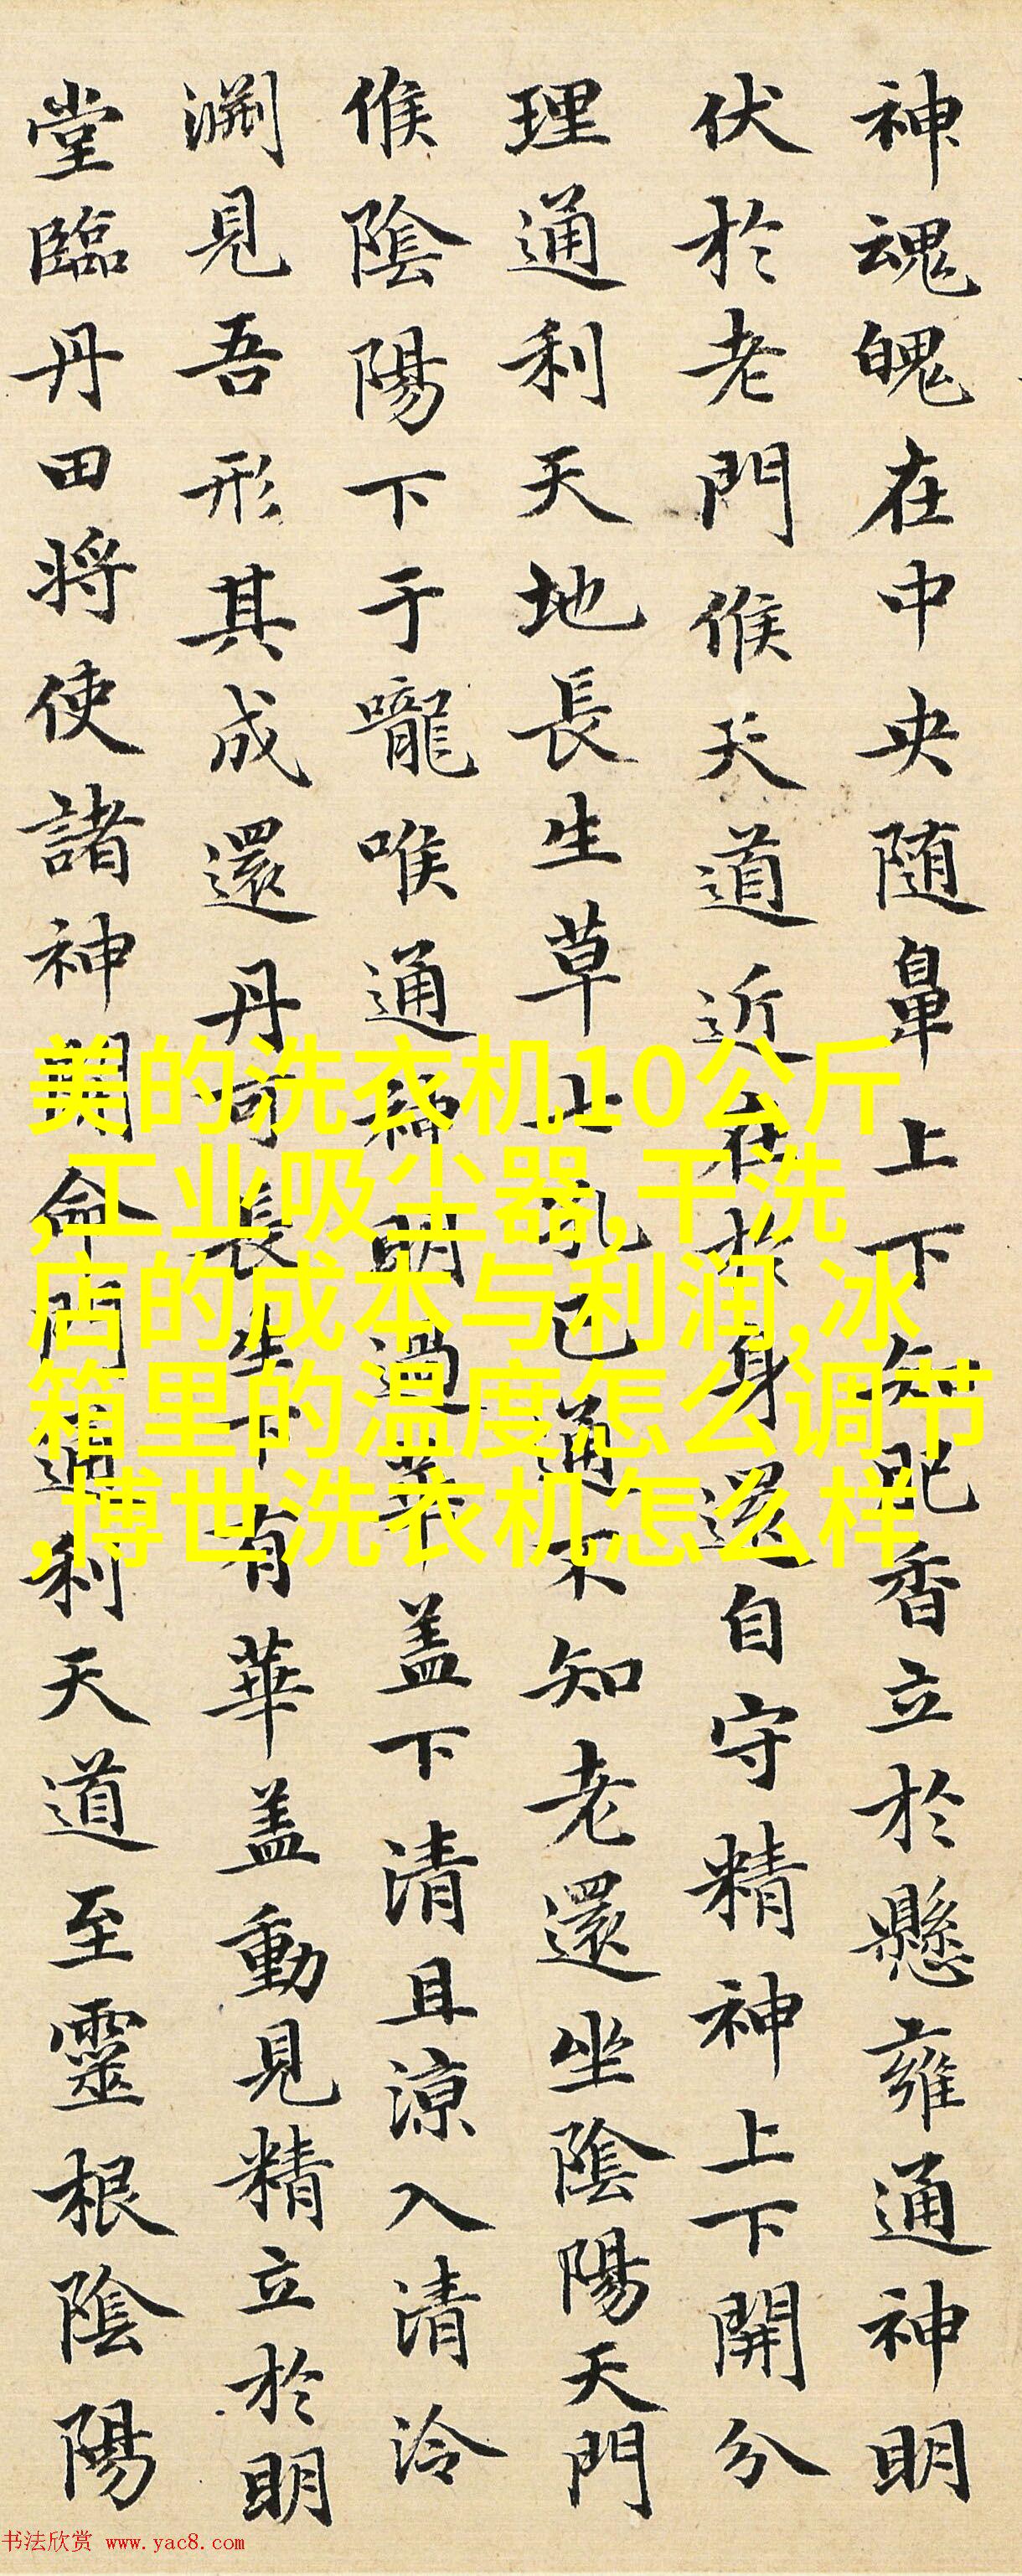 神魂魄在中央随鼻上下知肥香立於懸雍通神明
伏於老門候天道近在於身還自守精神上下開分
理通利天地長生草七孔已通不知老還坐陰陽天門
候陰陽下于嚨喉通神明過華盖下清且涼入清泠
渊見吾形其成還丹可長生下有華盖動見精立於明
堂臨丹田将使諸神開命門通利天道至靈根陰陽
美的洗衣机10公斤
,工业吸尘器,干洗
店的成本与利润,冰
箱里的温度怎么调节
,博世洗衣机怎么样
书法欣赏 www.yac8.com